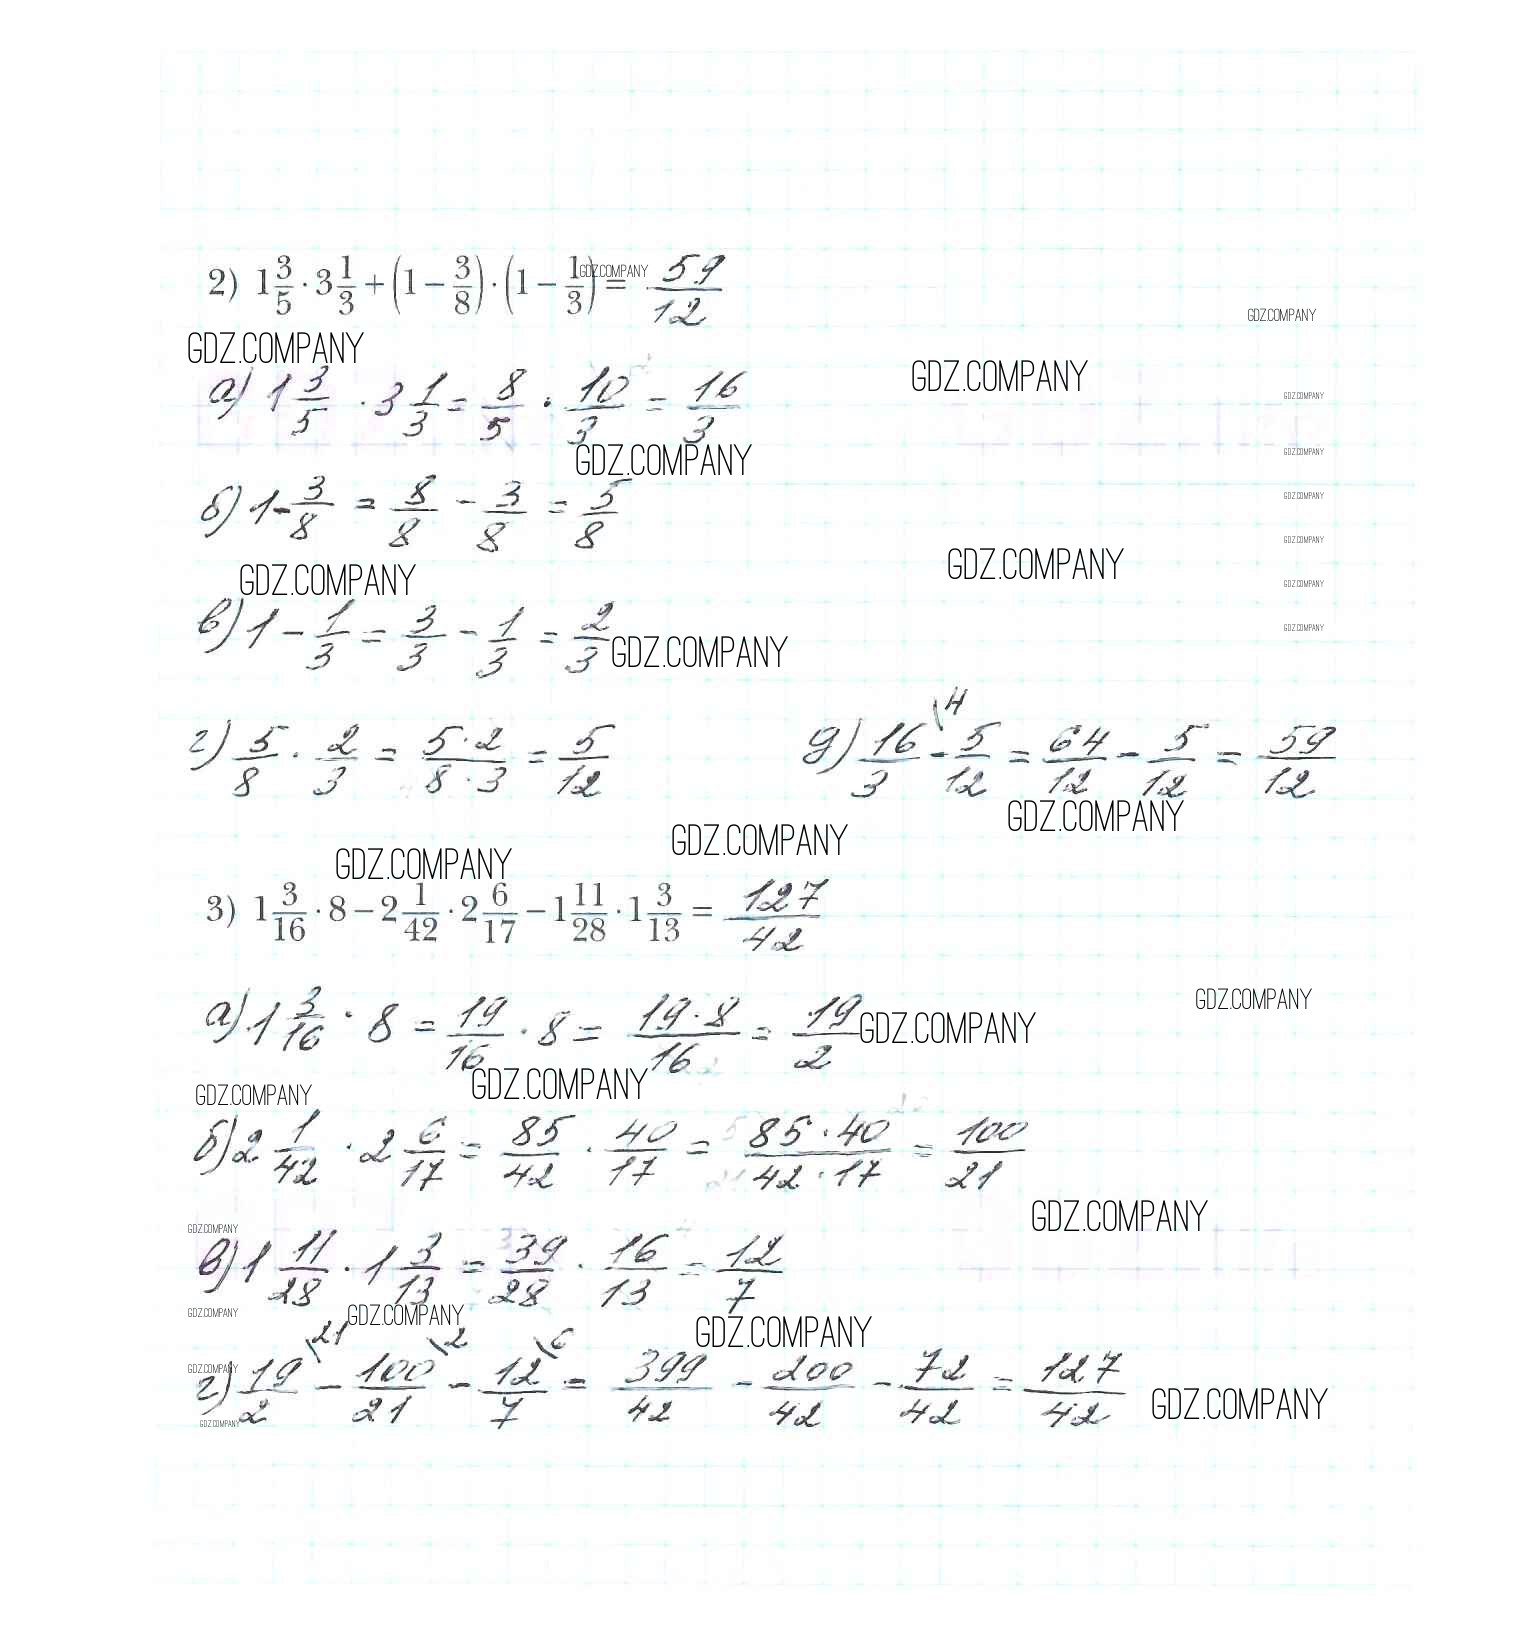 2) 1 3/5 · 3 1/3 + (1 − 3/8) · (1 − 1/3) = 59/12
GDZ.COMPANY
GDZ.COMPANY
GDZ.COMPANY
GDZ.COMPANY
а) 1 3/5 · 3 1/3 = 8/5 · 10/3 = 16/3
GDZ.COMPANY
GDZ.COMPANY
GDZ.COMPANY
б) 1 - 3/8 = 8/8 - 3/8 = 5/8
GDZ.COMPANY
GDZ.COMPANY
GDZ.COMPANY
GDZ.COMPANY
GDZ.COMPANY
в) 1 - 1/3 = 3/3 - 1/3 = 2/3
GDZ.COMPANY
GDZ.COMPANY
г) 5/8 · 2/3 = 5·2/8·3 = 5/12
д) 16/3 \4 - 5/12 = 64/12 - 5/12 = 59/12
GDZ.COMPANY
GDZ.COMPANY
GDZ.COMPANY
3) 1 3/16 · 8 − 2 1/42 · 2 6/17 − 1 11/28 · 1 3/13 = 127/42
а) 1 3/16 · 8 = 19/16 · 8 = 19·8/16 = 19/2
GDZ.COMPANY
GDZ.COMPANY
GDZ.COMPANY
GDZ.COMPANY
б) 2 1/42 · 2 6/17 = 85/42 · 40/17 = 85·40/42·17 = 100/21
GDZ.COMPANY
GDZ.COMPANY
в) 1 11/28 · 1 3/13 = 39/28 · 16/13 = 12/7
GDZ.COMPANY
GDZ.COMPANY
GDZ.COMPANY
GDZ.COMPANY
г) 19/2 \21 - 100/21 \2 - 12/7 \6 = 399/42 - 200/42 - 72/42 = 127/42
GDZ.COMPANY
GDZ.COMPANY